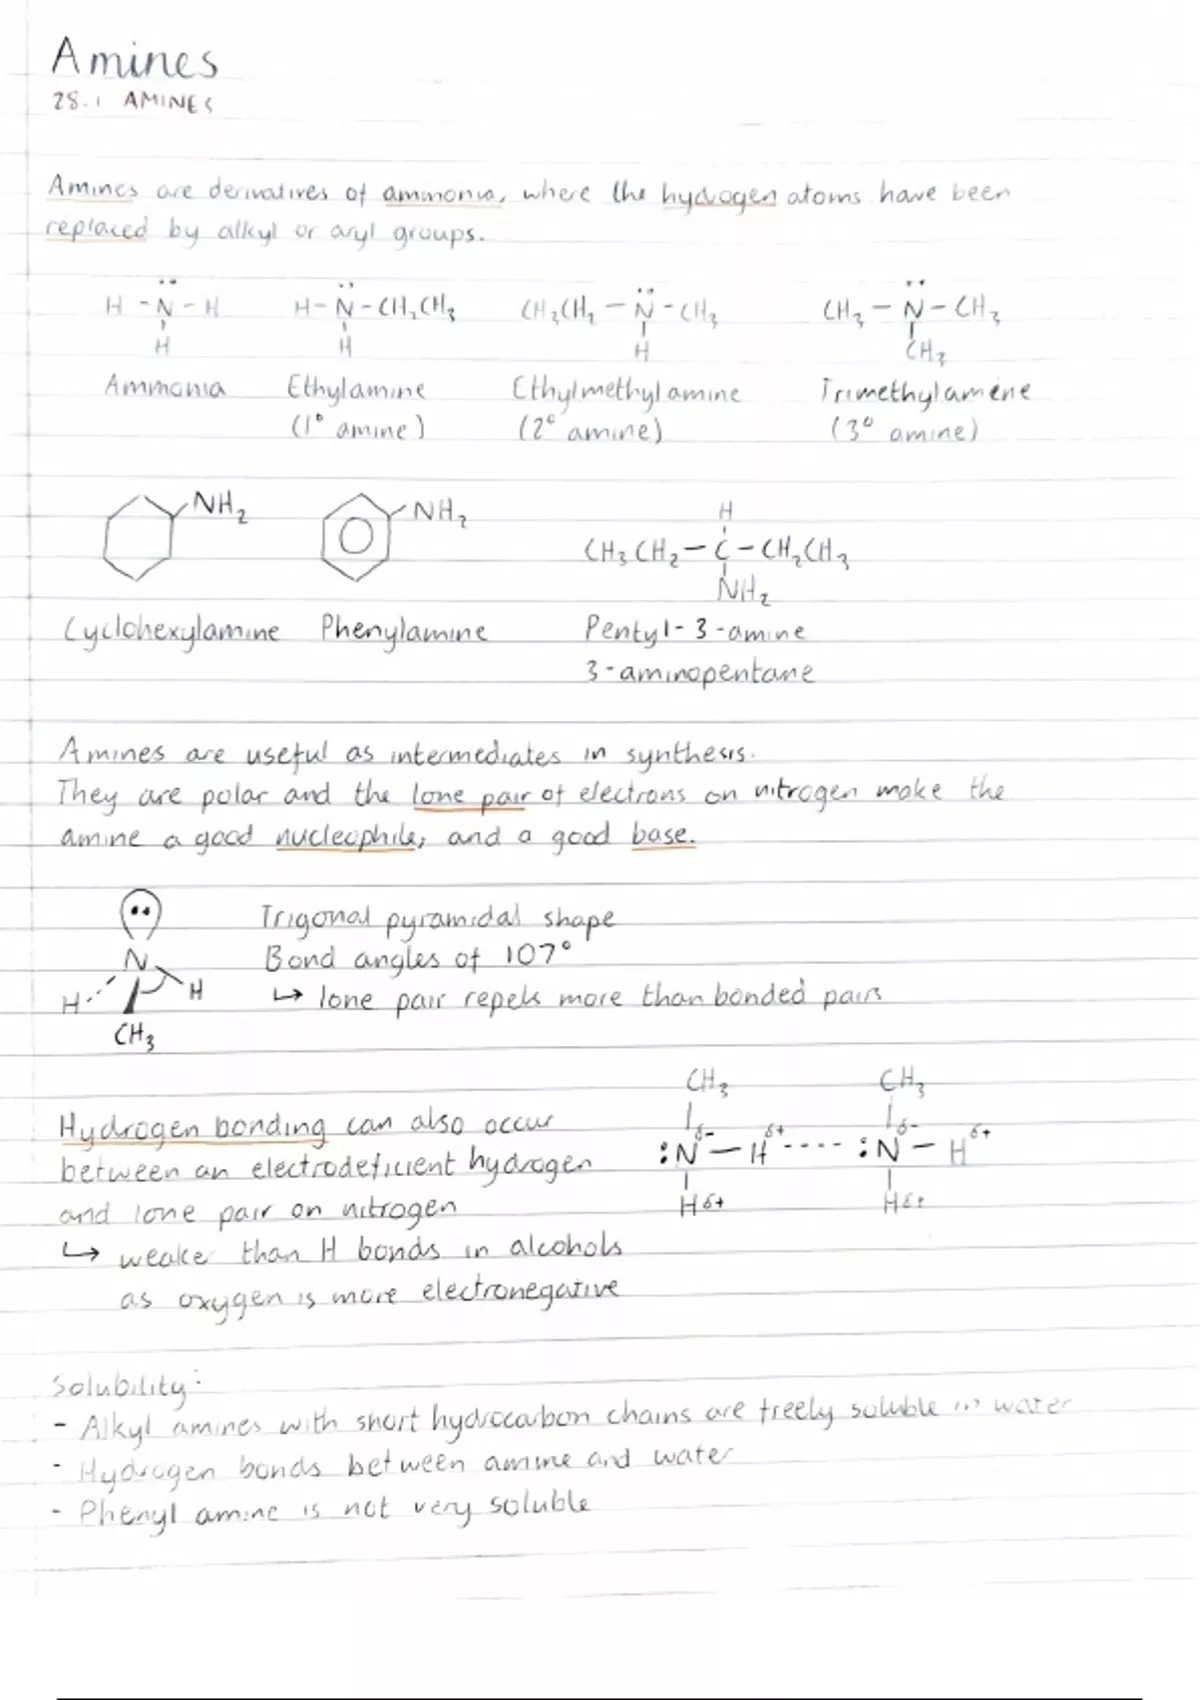 Amines
28.1 AMINES
Amines are derivatives of ammonia, where the hydrogen atoms have been
replaced by alkyl or aryl groups.
H - N̈ - H    H - N̈ - CH₂CH₃    CH₃CH₂ - N̈ - CH₃    CH₃ - N̈ - CH₃
H    H    H    CH₃
Ammonia    Ethylamine    Ethylmethylamine    Trimethylamine
(1° amine)    (2° amine)    (3° amine)
NH₂    NH₂    H
CH₃CH₂ - C - CH₂CH₃
NH₂
Cyclohexylamine    Phenylamine    Pentyl-3-amine
3-aminopentane
Amines are useful as intermediates in synthesis.
They are polar and the lone pair of electrons on nitrogen make the
amine a good nucleophile, and a good base.
Trigonal pyramidal shape
N    Bond angles of 107°
H    H    ↳ lone pair repels more than bonded pairs
CH₃
CH₃    CH₃
Hydrogen bonding can also occur    :N δ- — H δ+ ---- :N δ- — H δ+
between an electrodeficient hydrogen
and lone pair on nitrogen    H δ+    H δ+
↳ weaker than H bonds in alcohols
as oxygen is more electronegative
Solubility:
- Alkyl amines with short hydrocarbon chains are freely soluble in water
- Hydrogen bonds between amine and water
- Phenyl amine is not very soluble